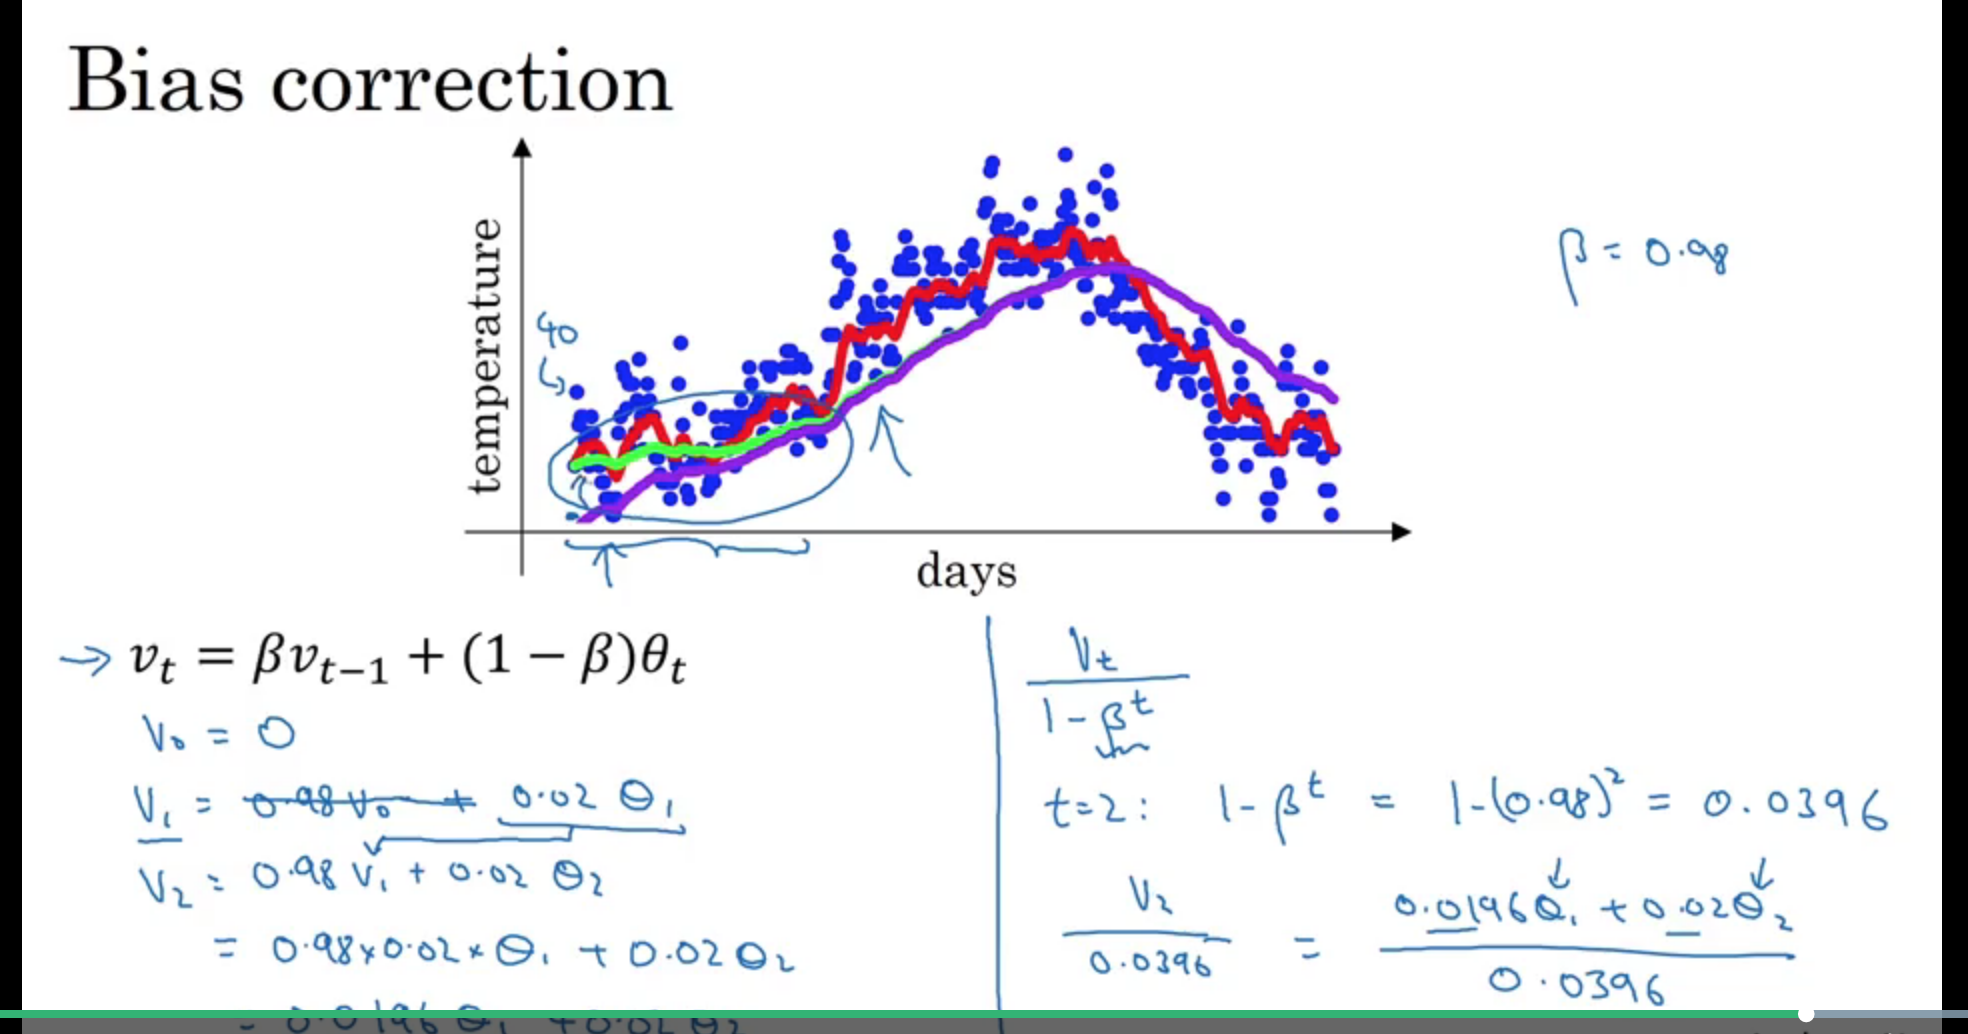 Bias correction
temperature
40
days
β = 0.98
→ v_t = βv_{t−1} + (1 − β)θ_t
V_0 = 0
V_1 = 0.98 V_0 + 0.02 θ_1
V_2 = 0.98 V_1 + 0.02 θ_2
= 0.98 × 0.02 × θ_1 + 0.02 θ_2
= 0.0196 θ_1 + 0.02 θ_2
V_t
1 - β^t
t=2: 1 - β^t = 1-(0.98)^2 = 0.0396
V_2
0.0396
=
0.0196 θ_1 + 0.02 θ_2
0.0396